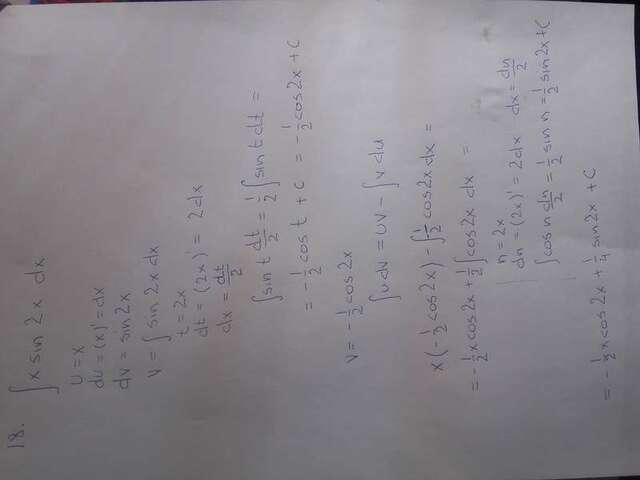 18.
∫ x sin 2x dx
u = x
du = (x)' = dx
dv = sin 2x
v = ∫ sin 2x dx
t = 2x
dt = (2x)' = 2dx
dx = dt/2
∫ sin t dt/2 = 1/2 ∫ sin t dt =
= -1/2 cos t + C = -1/2 cos 2x + C
v = -1/2 cos 2x
∫ u dv = uv - ∫ v du
x(-1/2 cos 2x) - ∫ -1/2 cos 2x dx =
= -1/2 x cos 2x + 1/2 ∫ cos 2x dx =
n = 2x
dn = (2x)' = 2dx dx = dn/2
∫ cos n dn/2 = 1/2 sin n = 1/2 sin 2x + C
= -1/2 x cos 2x + 1/4 sin 2x + C